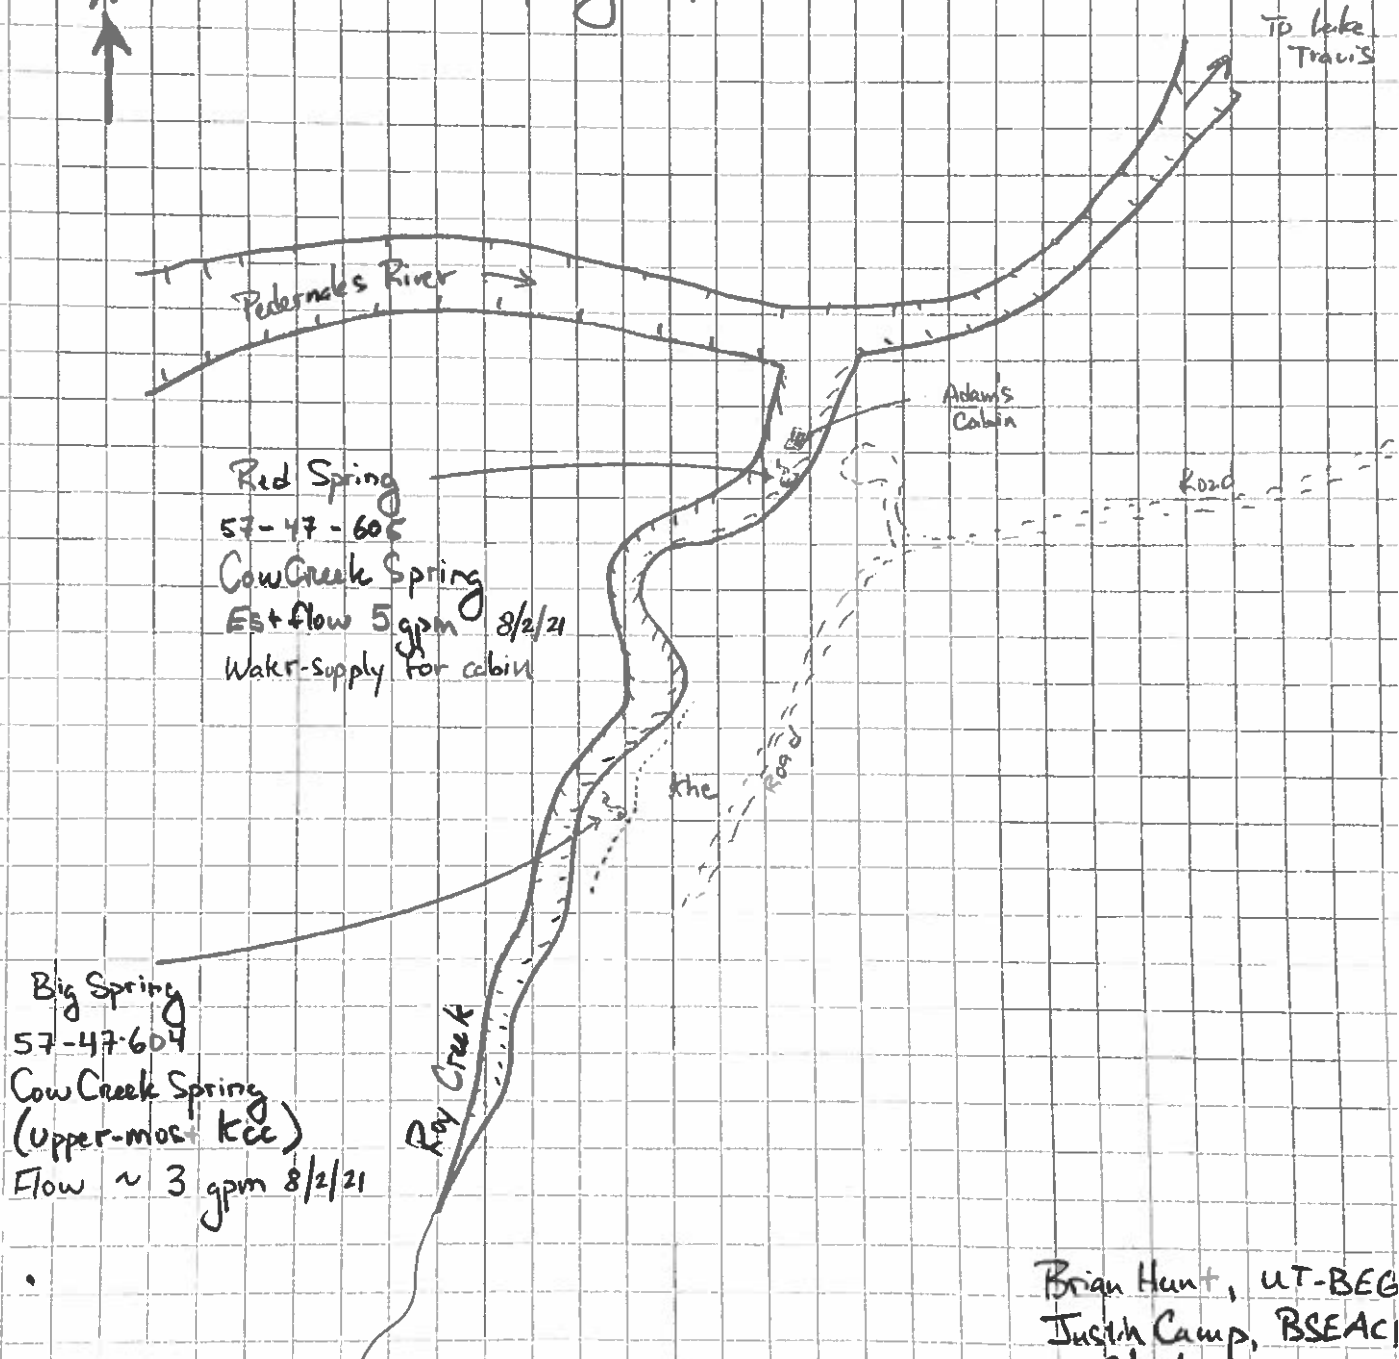 To Lake
Travis
Pedernales River
Adam's
Cabin
Road
Red Spring
57-47-605
Cow Creek Spring
Est flow 5 gpm 8/2/21
Water-supply for cabin
Khe
Road
Big Spring
57-47-604
Cow Creek Spring
(upper-most Kcc)
Flow ~ 3 gpm 8/2/21
Roy Creek
Brian Hunt, UT-BEG
Justin Camp, BSEAC